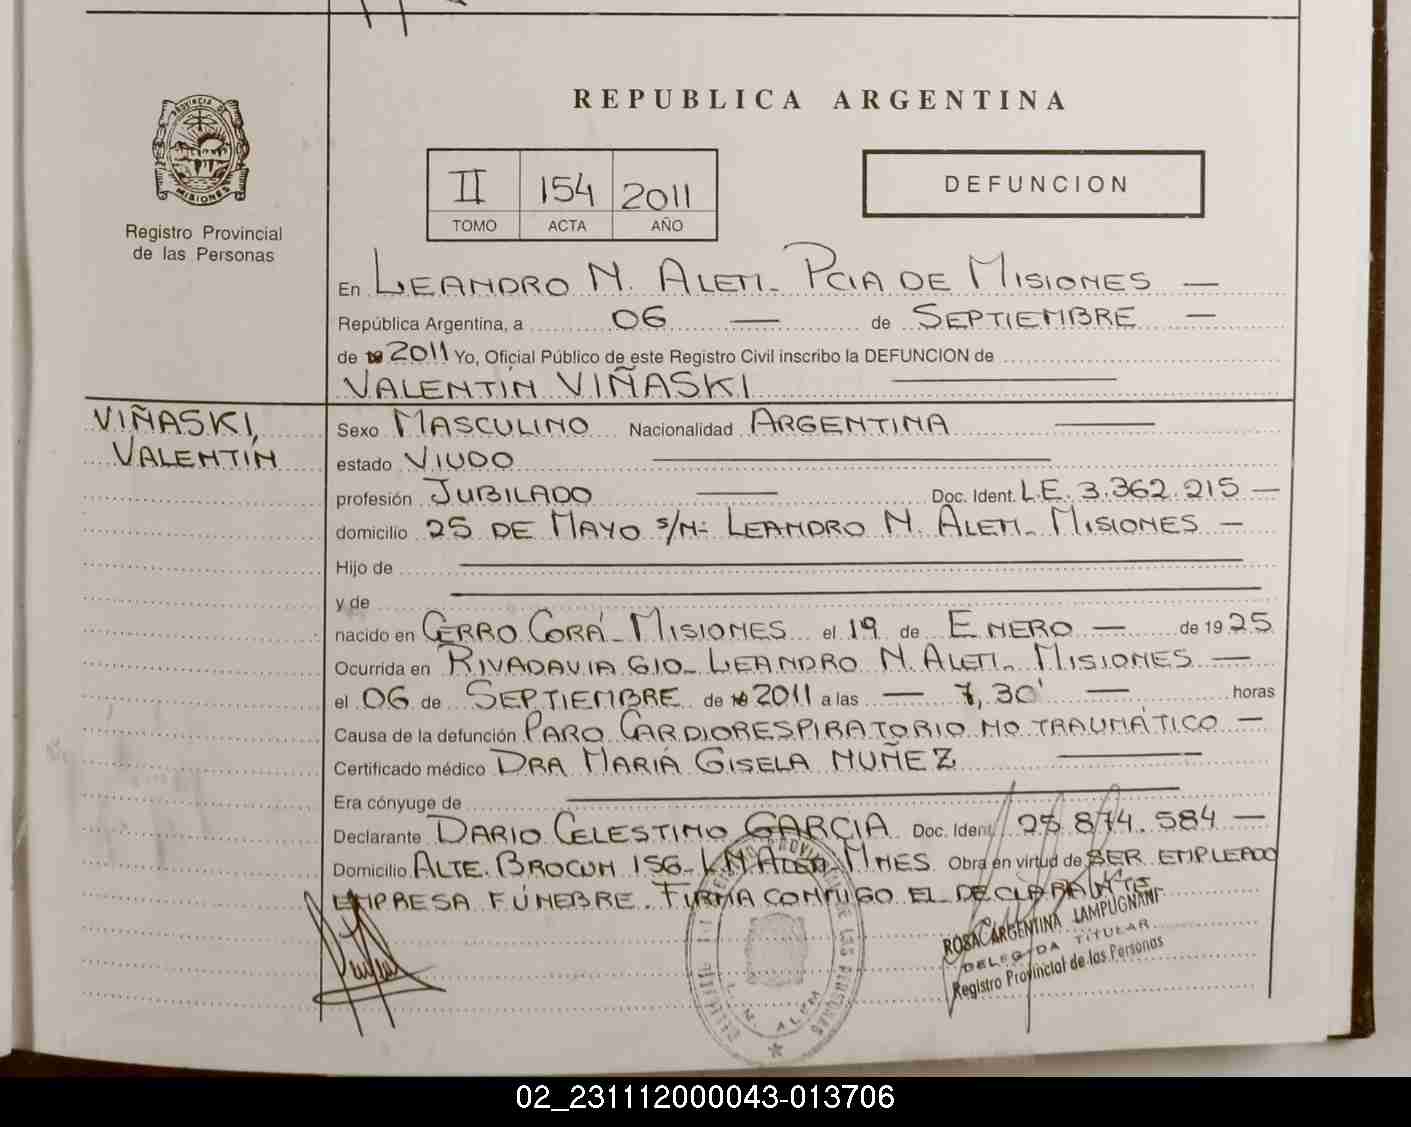 REPUBLICA ARGENTINA
PROVINCIA DE
MISIONES
Registro Provincial
de las Personas
II 154 2011
TOMO ACTA AÑO
DEFUNCION
En LEANDRO N. ALEM - PCIA DE MISIONES —
República Argentina, a 06 — de SEPTIEMBRE —
de 19 2011 Yo, Oficial Público de este Registro Civil inscribo la DEFUNCION de
VALENTÍN VIÑASKI
VIÑASKI,
VALENTÍN
Sexo MASCULINO Nacionalidad ARGENTINA
estado VIUDO
profesión JUBILADO Doc. Ident. L.E. 3.362.215 —
domicilio 25 DE MAYO S/N - LEANDRO N. ALEM - MISIONES —
Hijo de
y de
nacido en CERRO CORÁ - MISIONES el 19 de ENERO — de 19 25
Ocurrida en RIVADAVIA 610 - LEANDRO N. ALEM - MISIONES —
el 06 de SEPTIEMBRE de 19 2011 a las — 7,30' — horas
Causa de la defunción PARO CARDIORESPIRATORIO NO TRAUMÁTICO —
Certificado médico DRA MARIÁ GISELA NUÑEZ
Era cónyuge de
Declarante DARIO CELESTINO GARCIA Doc. Ident. 25.874.584 —
Domicilio ALTE. BROWN 156 - L.N.ALEM MNES Obra en virtud de SER EMPLEADO
EMPRESA FÚNEBRE. FIRMA CONMIGO EL DECLARANTE
ROSA ARGENTINA LAMPUGNANI
DELEGADA TITULAR
Registro Provincial de las Personas
PROVINCIAL DE LAS PERSONAS
L. N. ALEM
02_231112000043-013706